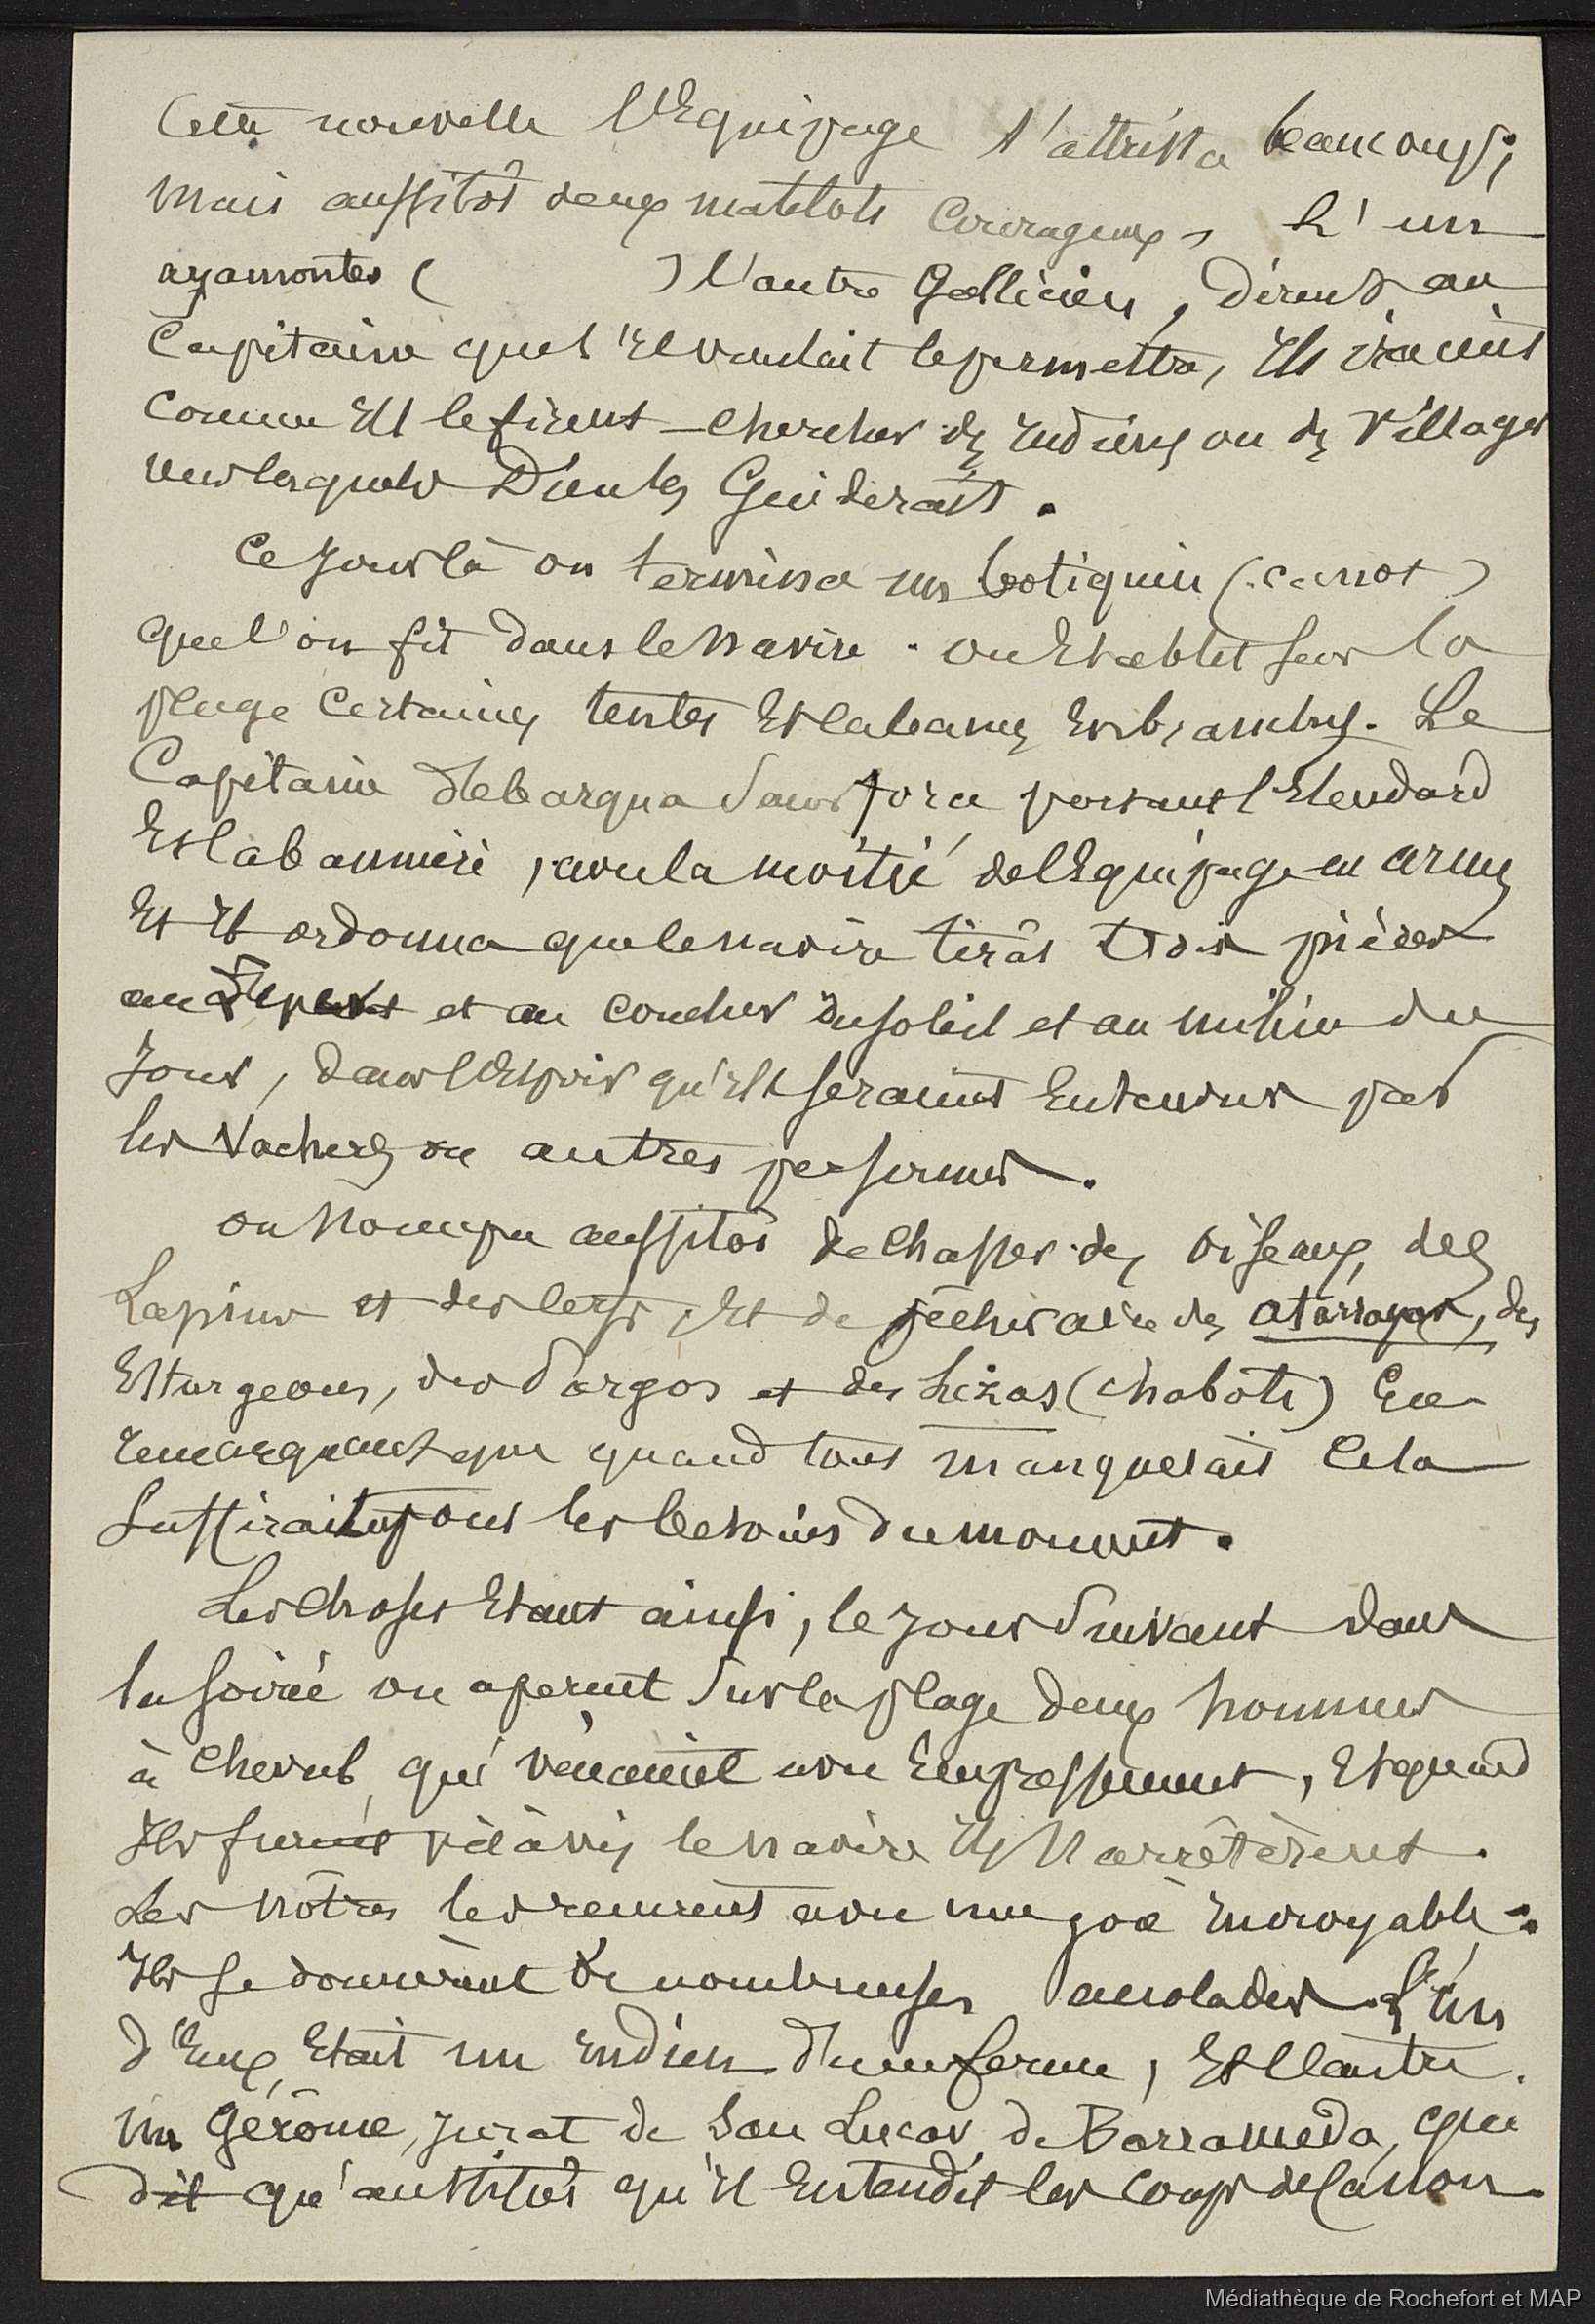 Cette nouvelle l'Equipage s'attrista beaucoup;
mais aussitôt deux matelots courageux, L'un
ayamontes ( ) l'autre Gallicien, dirent au
Capitaine que s'il voulait le permettre, Ils iraient
comme Ils le firent - chercher des Indiens ou des Villages
vers lesquels Dieu les Guiderait.
Ce Jour là on termina un botiquin (canot)
que l'on fit dans le Navire. On Etablit sur la
plage certaines tentes Et cabanes En branches. Le
Capitaine débarqua portant l'Etendard
Et la bannière, avec la moitié de l'Equipage en armes
Et Il ordonna que le navire tirât trois pièces
au et au coucher du soleil et au milieu du
Jour, dans l'Espoir qu'Ils seraient Entendus par
les Vachers ou autres personnes.
on aussitôt de chasser des oiseaux, des
Lapins et des cerfs, Et de pêcher avec des atarrayas, des
Esturgeons, des Pargos et des Lizas (chabots) En
remarquant que quand tout manquerait Cela
suffirait pour les besoins du moment.
Les choses Etant ainsi, le jour suivant dans
la soirée on aperçut sur la plage deux hommes
à cheval, qui venaient avec Empressement, Et quand
Ils furent vis à vis le navire Ils s'arrêtèrent.
Les nôtres les reçurent avec une joie incroyable.
Ils se donnèrent de nombreuses accolades. L'un
d'Eux Etait un Indien d'une ferme, Et l'autre
un Gérôme, Jurat de San Lucar de Barrameda, qui
dit qu'aussitôt qu'il Entendit les coups de Canon
Médiathèque de Rochefort et MAP